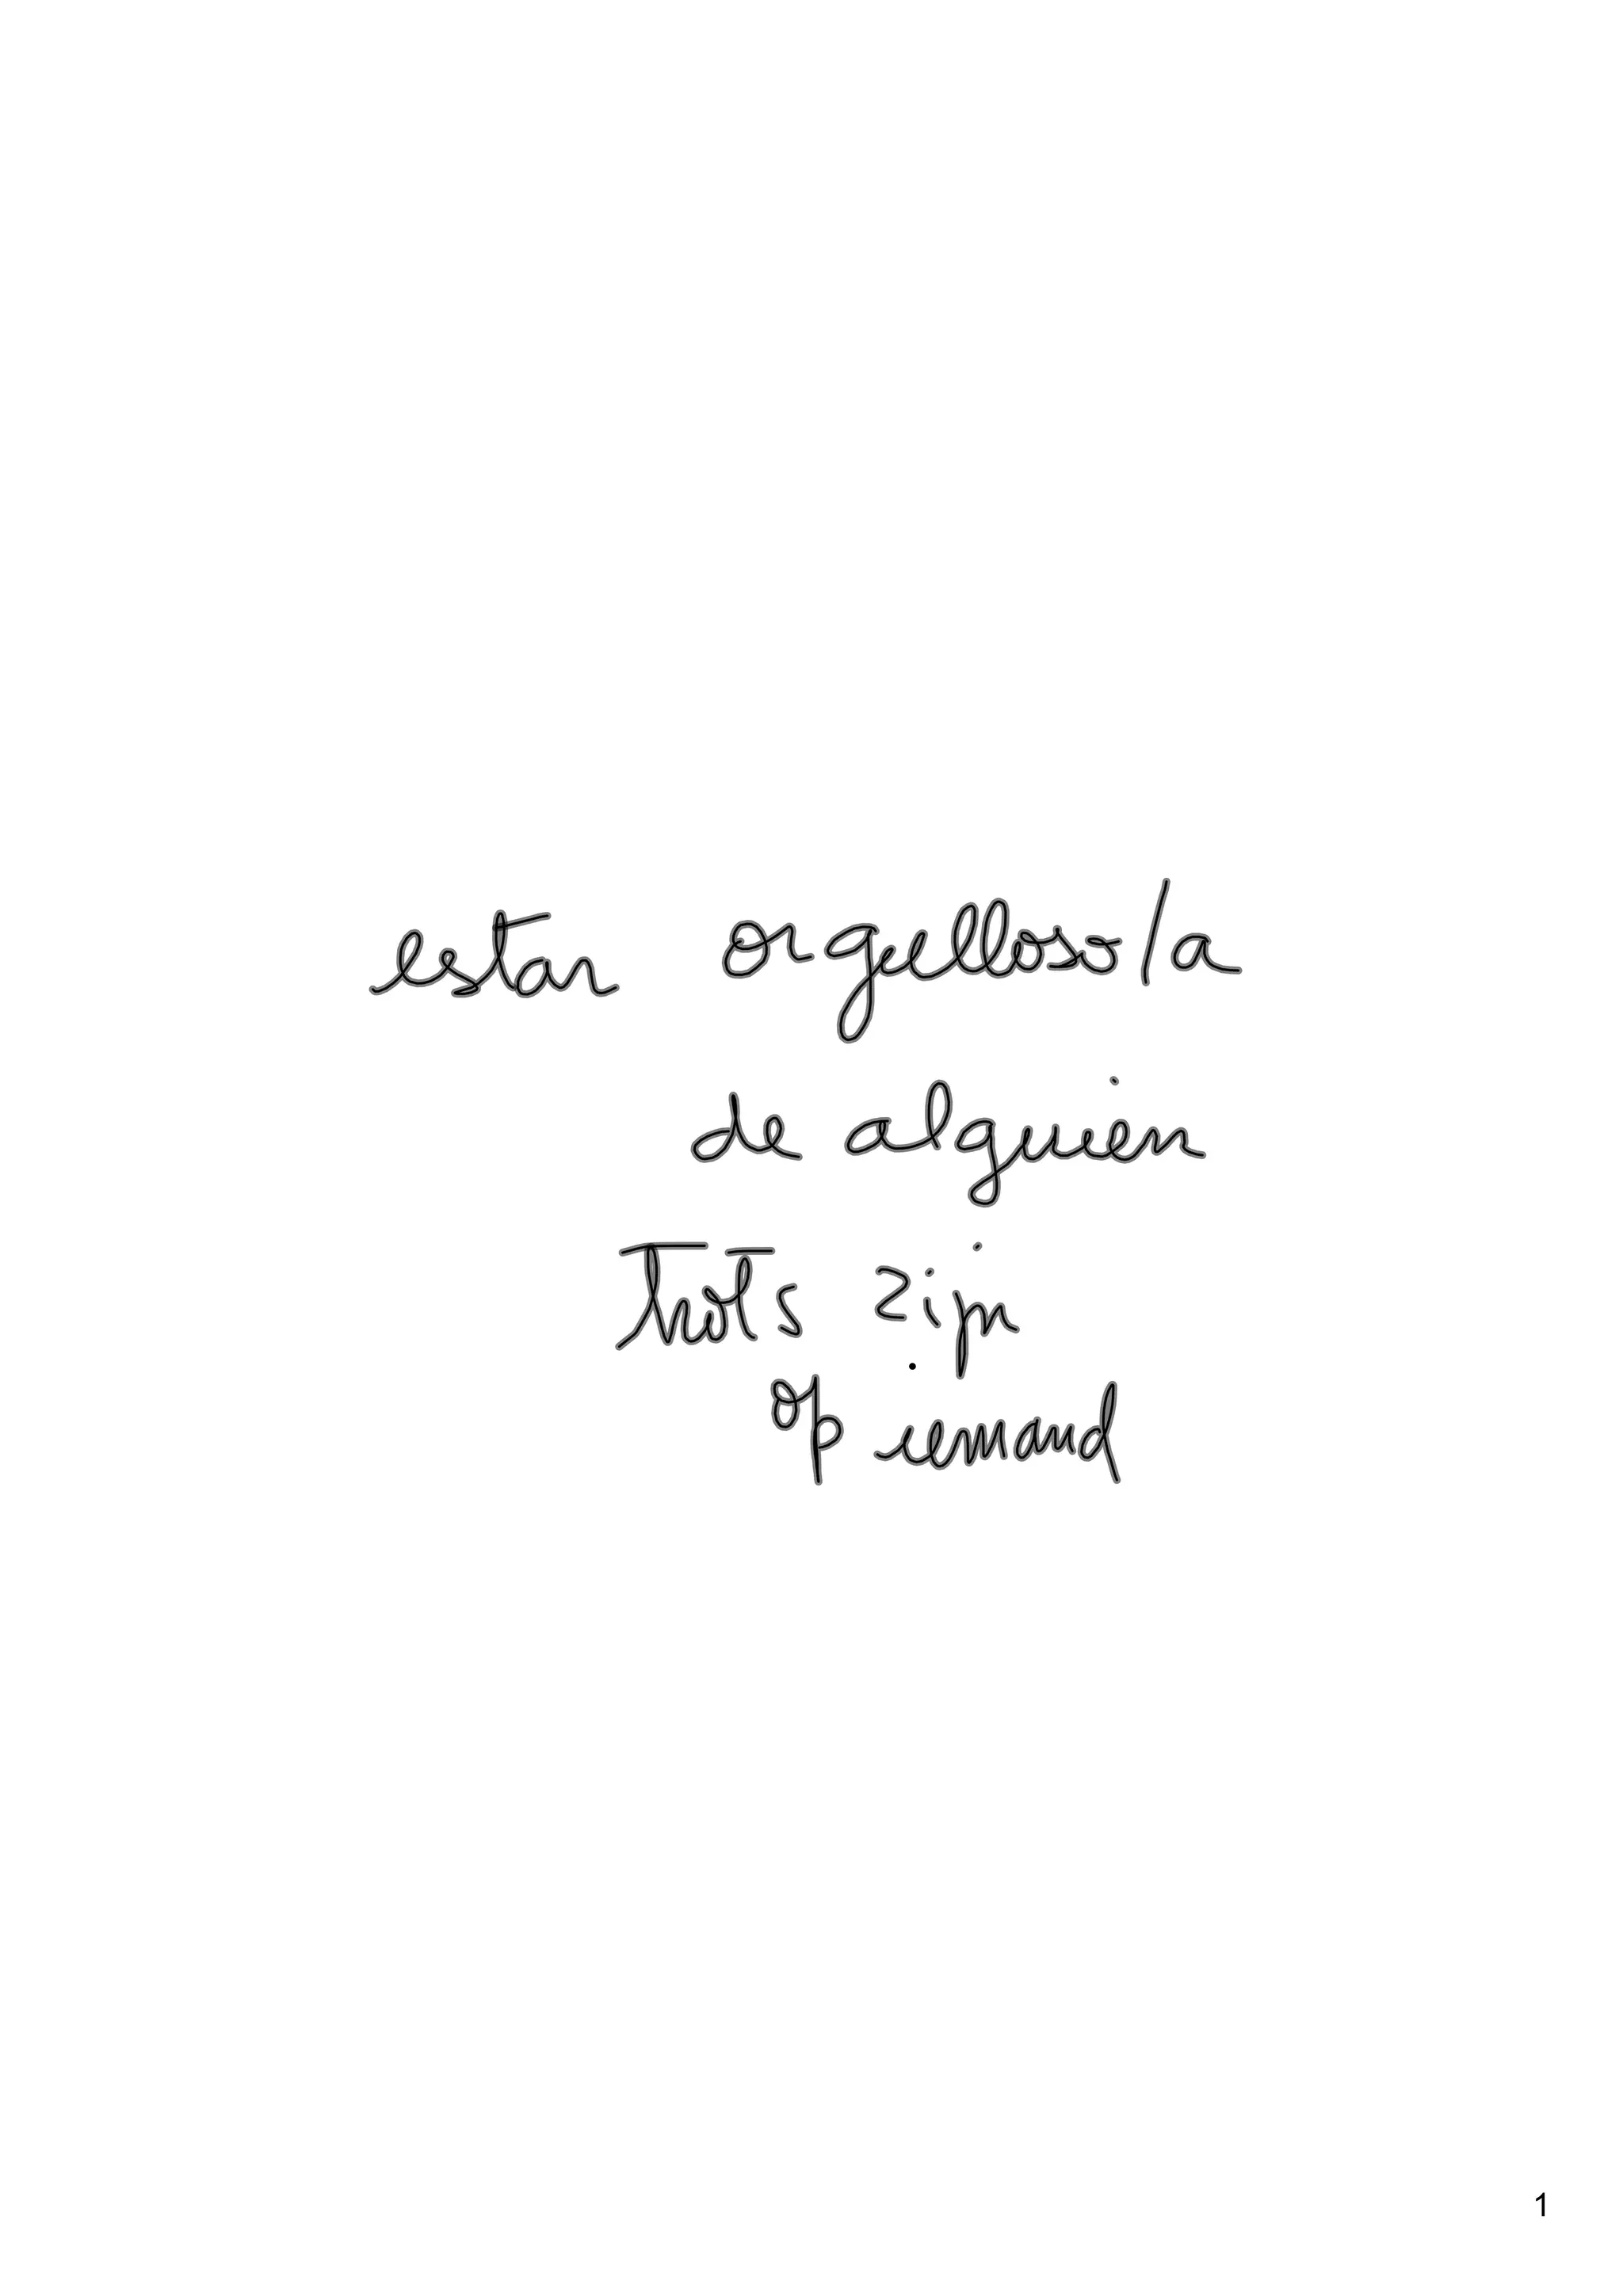 estar orgelloso/a
de alguien
trots zijn
op iemand
1